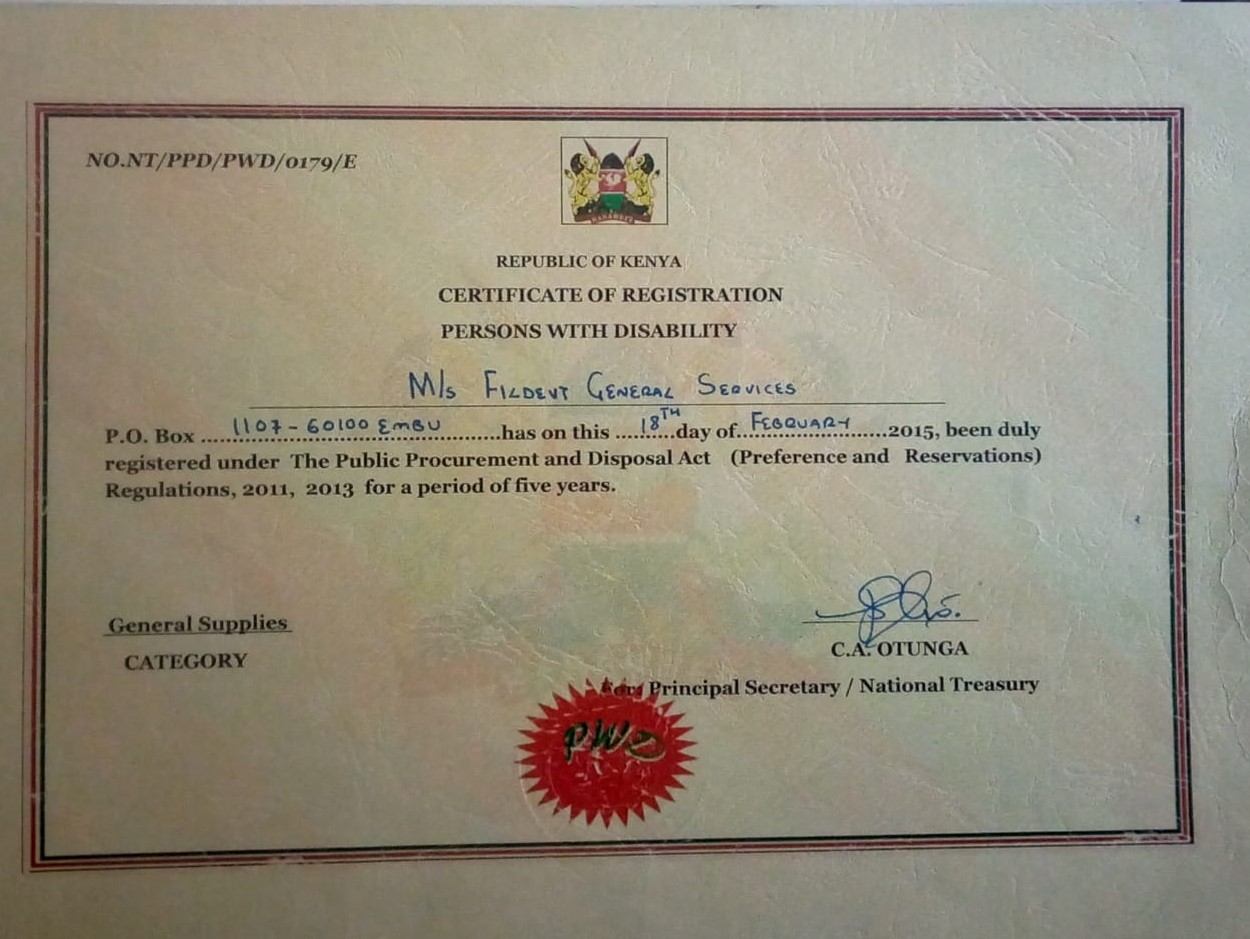 NO.NT/PPD/PWD/0179/E
HARAMBEE
REPUBLIC OF KENYA
CERTIFICATE OF REGISTRATION
PERSONS WITH DISABILITY
M/s FILDENT GENERAL SERVICES
P.O. Box ....1107-60100 EMBU....has on this ....18TH....day of....FEBRUARY....2015, been duly
registered under The Public Procurement and Disposal Act (Preference and Reservations)
Regulations, 2011, 2013 for a period of five years.
General Supplies
CATEGORY
C.A. OTUNGA
For: Principal Secretary / National Treasury
PWD